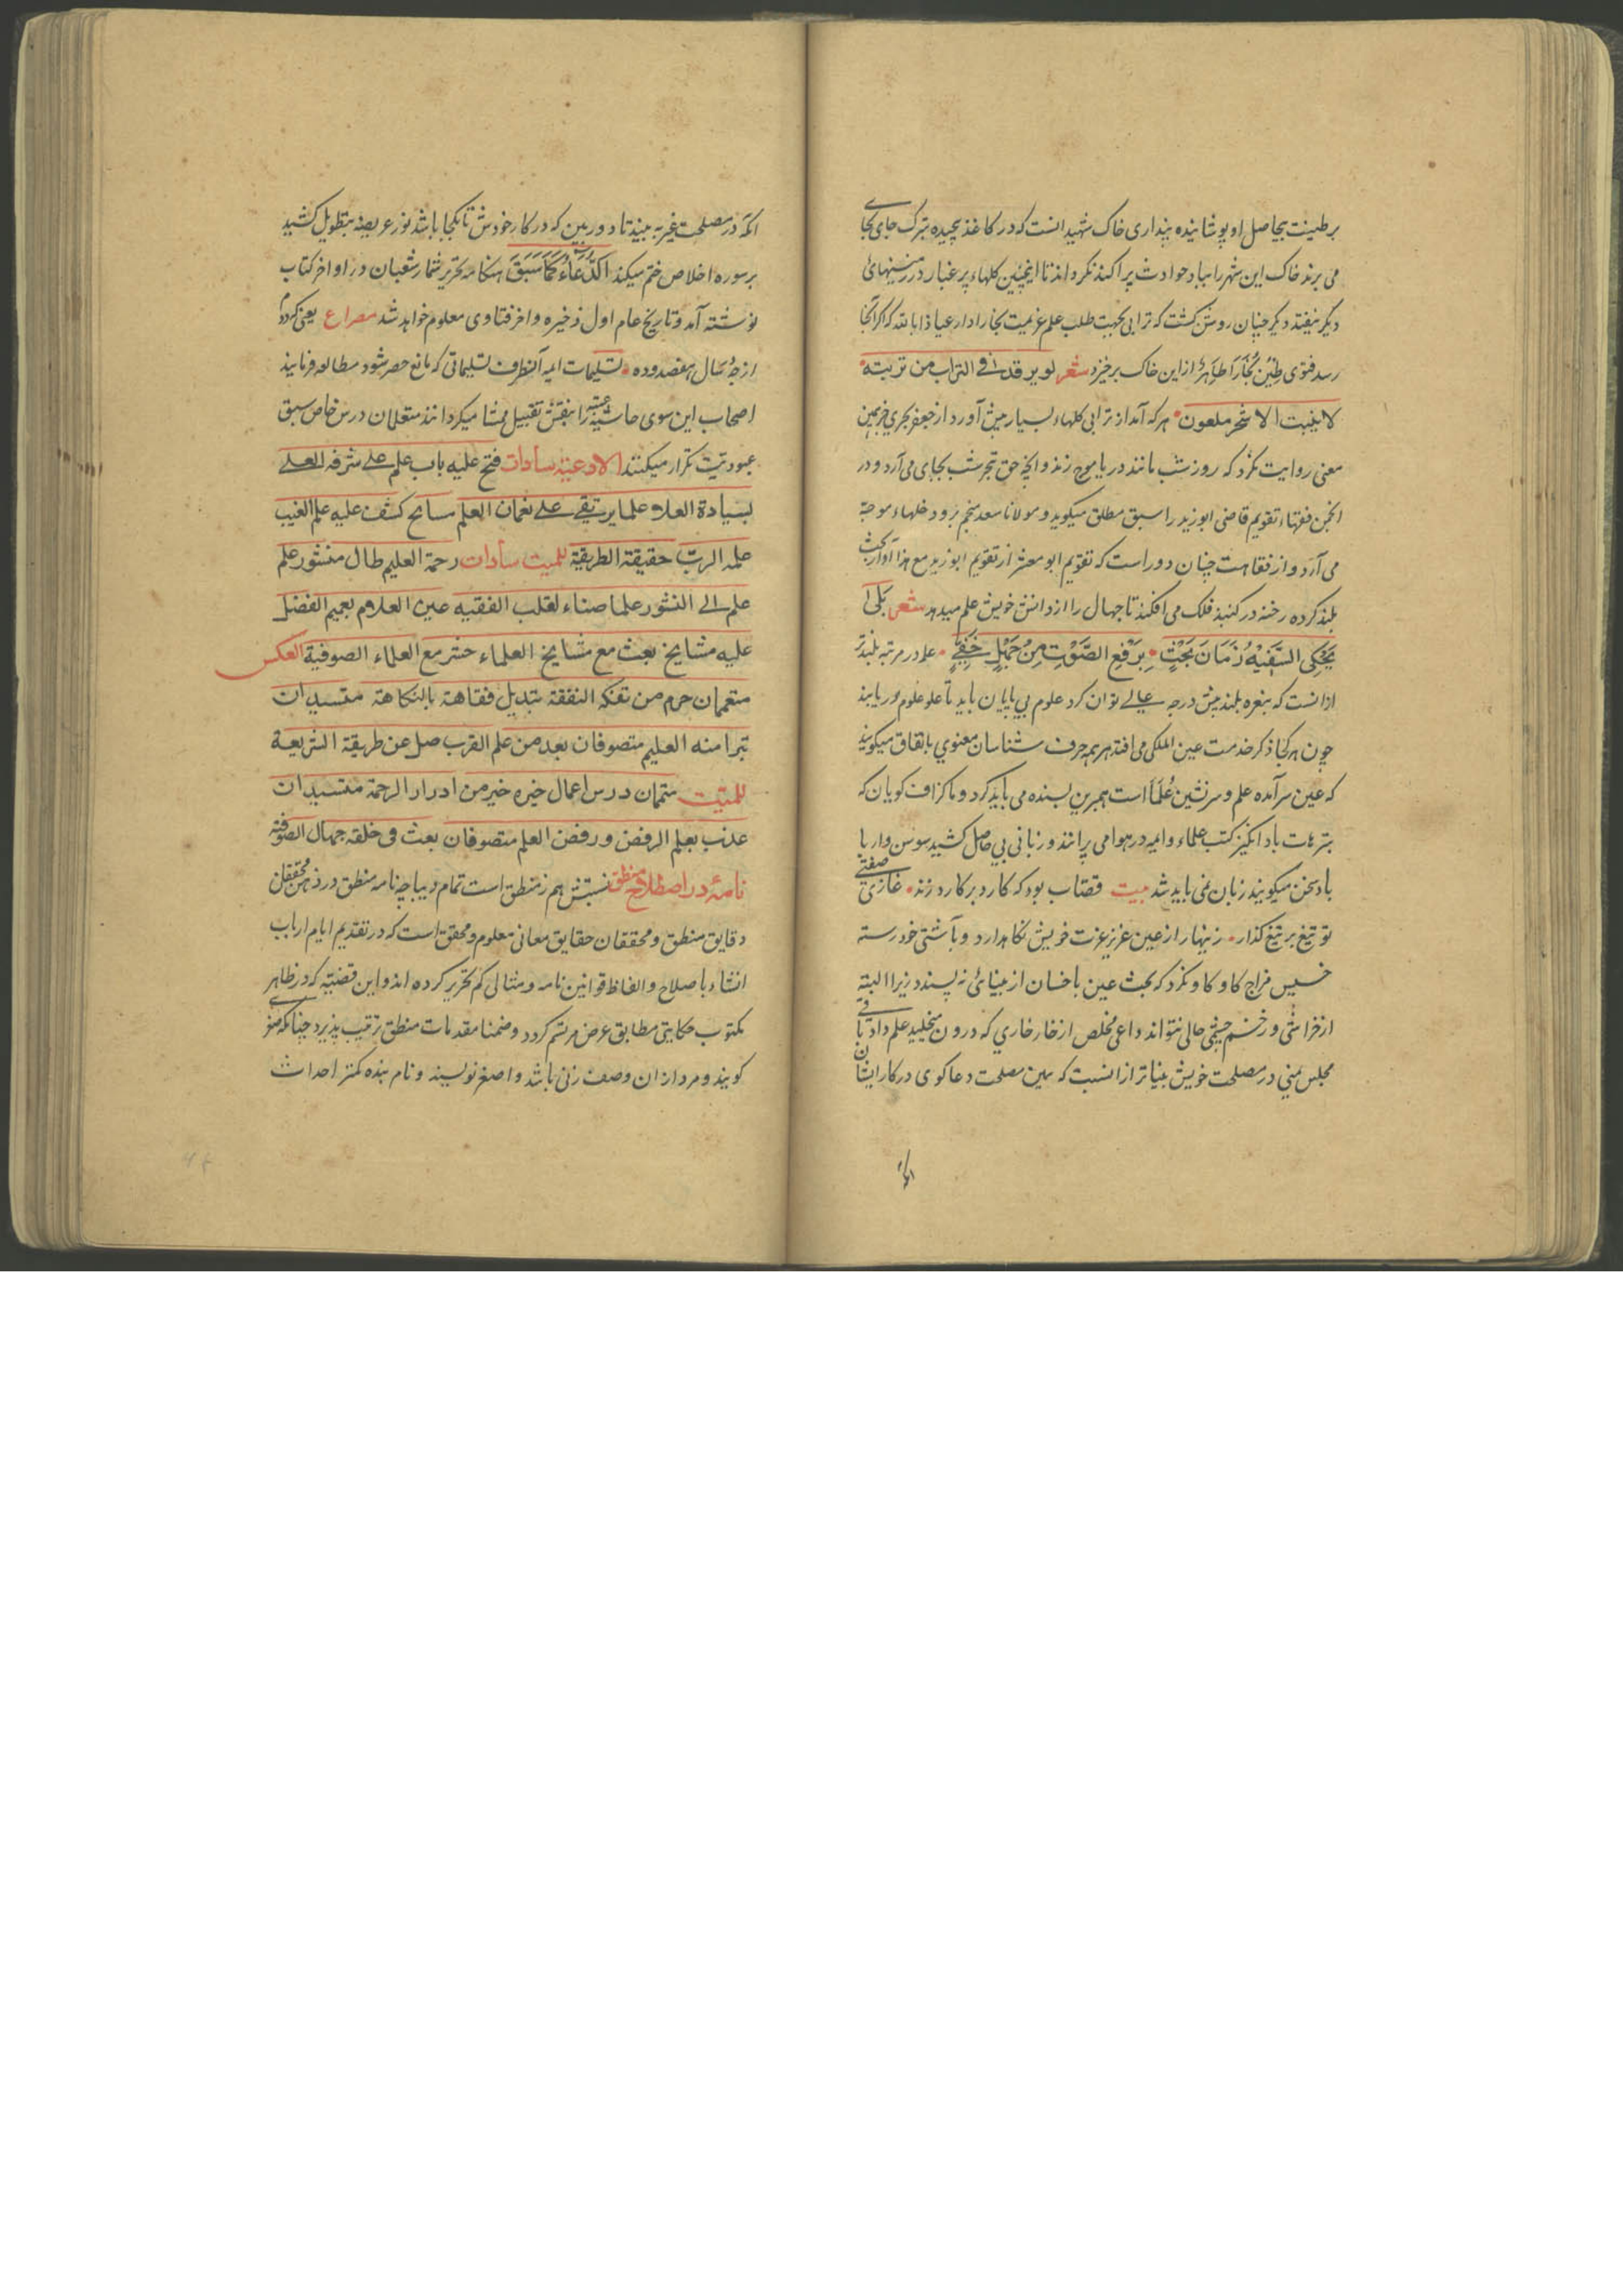 بر طینت بیحاصل او پوشانیده پنداری خاک شهید انست که در کاغذ پیچیده تبرک جای بجای
می برند خاک این شهر را بباد حوادث پراکنده نکرداند تا اینچنین کلهاء پر غبار در زمینهائ
دیگر نیفتد دیگر چنان روشن گشت که ترابی بجهت طلب علم عزیمت بخارا دارد عیاذا بالله که اگر آنجا
رسد فتوی طین بخارا طاهر از این خاک برخیزد شعر لو یرقدنی التراب من تربته
لا ینبت الا شجر ملعون هر که آمد از ترابی کلهاء بسیار پیش آورد از جعفر بحری
معنی روایت نکرد که روز شب مانند دریا موج زند و الحق بحر شب بجای می آرد و در
انجمن فقهاء تقویم قاضی ابو زید را سبق مطلق میکوید و مولانا سعد منجم برو دخلهاء موجه
می آرد و از فقاهت چنان دور است که تقویم ابو معشر از تقویم ابو زید مع هذا آواز بحث
بلند کرده رخنه در کنبذ فلک می افکند تا جهال را از دانش خویش علم میدهد شعر بلی
یحکی السفیه زمان بحث برفع الصوت من جهل خفی علم در مرتبه بلندتر
از انست که بنعره بلند پیش درجه عالی توان کرد علوم بی پایان باید تا علو علوم دریابند
چون هر کجا ذکر خدمت عین الملکی می افتد هر همه حرف شناسان معنوی باتفاق میکویند
که عین سرآمده علم و سرنشین علما است همبرین بسنده می باید کرد و ما کزاف کویان که
بترهات باد انکیز کتب علماء و ایمه در هوا می پرانند و زبانی بی حاصل کشید سوسن وار با
باد سخن میکویند زبان نمی باید شد بیت قصاب بود که کارد بر کارد زند غازی صفتی
تو تیغ بر تیغ کذار زینهار از عین عزیز عزت خویش نکاهدارد و با شتی خود رسته
خسیس مزاج کاو کاو نکرد که بحث عین با خسان از بینائی نه پسندد زیرا البته
از خراشی و زخم چشمی حالی نتواند داعی مخلص از خار خاری که درون میخلید علم داد باقی
مجلس منی در مصلحت خویش بیناتر از انست که بین مصلحت دعا کوی در کار ایشان
انکه در مصلحت غیر به بیند تا دوربین که در کار خودش تا بکجا باشد نور عریضه بتطویل کشید
بر سوره اخلاص ختم میکند الدعاء کما سبق هنکامه تحریر شمار شعبان در اواخر کتاب
نوشته آمد و تاریخ عام اول ذخیره و اخر فتاوی معلوم خواهد شد مصراع یعنی کردم
از جو سال هفصد و ده تسلیمات ایمه آنطرف تسلیماتی که مانع حصر شود مطالعه فرمایند
اصحاب این سوی حاشیه عتبه را بنقش تقبیل محشا میکردانند متعلمان درس خاص سبق
عبودیت تکرار میکنند الادعیة سادات فتح علیه باب علم علی شرفه العلی
بسیادة العلاء علما یرتقی علی نعمان العلم سانح کشف علیه علم الغیب
علمه الرب حقیقة الطریقة للمیت سادات رحمة العلیم طال منشور علم
علم الی النشور علما صناء لقلب الفقیه عین العلوم بعمیم الفضل
علیه مشایخ بعث مع مشایخ العلماء حشر مع العلماء الصوفیة العکس
متعممان حرم من تفکه النفقة بتدیل فقاهة بالنکاهة متسیدان
تبرا منه العلیم متصوفان بعد من علم القرب ضل عن طریقة الشریعة
للمیت متعممان درس اعمال خیره خیر من ادرار الرحمة متسیدان
عذب بعلم الرفض و رفض العلم متصوفان بعث فی حلقه جهال الصوفیة
نامهٔ در اصطلاح منطق نسبتش هم ز منطق است تمام دیباچه نامه منطق در ذهن محققان
دقایق منطق و محققان حقایق معانی معلوم و محقق است که در تقدیم ایام ارباب
انشاء باصلاح و الفاظ قوانین نامه و مثالی کم تحریر کرده اند و این قضیته که در ظاهر
مکتوب حکایتی مطابق عرض مرتسم کردد و ضمنا مقدمات منطق ترتیب پذیرد چنانکه صغری
کویند و مرد از ان وصف زنی باشد و اصغر نویسند و نام بنده کمتر احداث